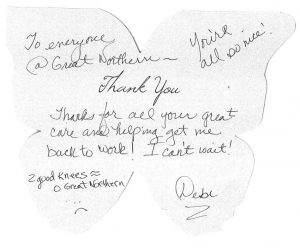 To everyone
@ Great Northern ~
You're
all so nice!
Thank You
Thanks for all your great
care and helping get me
back to work! I can't wait!
2 good knees ≈
Great Northern